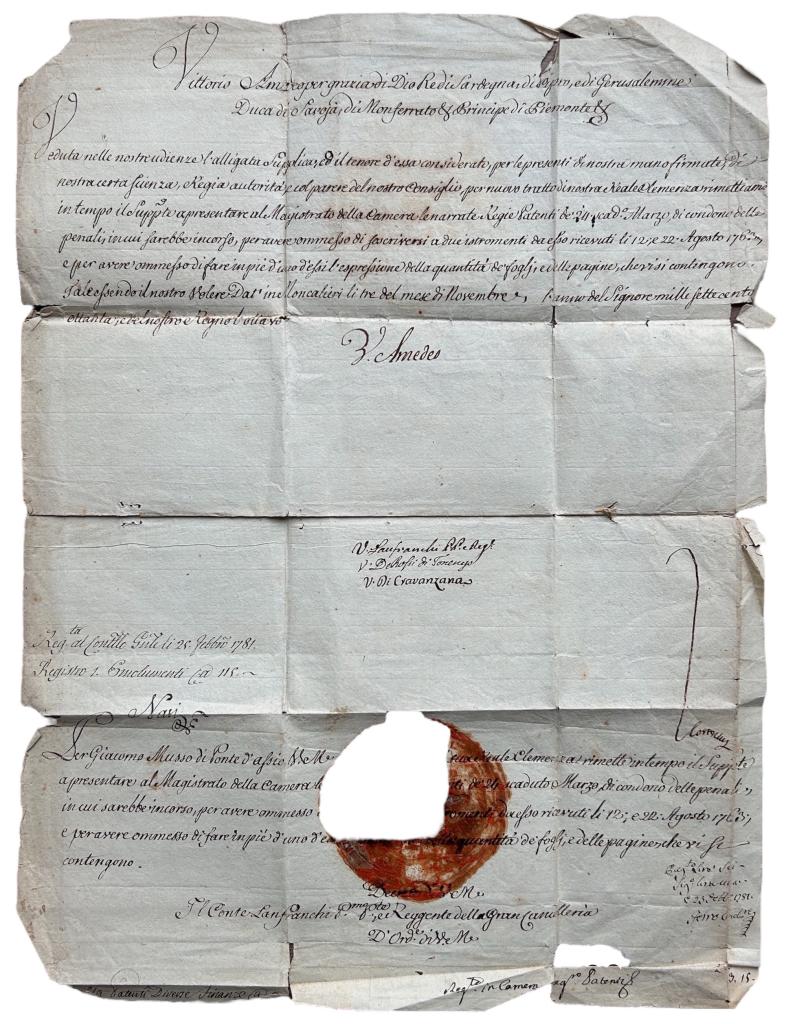 Vittorio Amedeo per grazia di Dio Re di Sardegna, di Cipro, e di Gerusalemme
Duca di Savoja, di Monferrato & Principe di Piemonte &
Veduta nelle nostre udienze l'alligata Supplica, ed il tenore d'essa considerato, per le presenti di nostra mano firmate, di
nostra certa scienza, Regia autorità, e col parere del nostro Consiglio, per nuovo tratto di nostra Reale Clemenza rimettiamo
in tempo il Supp.te a presentare al Magistrato della Camera le narrate Regie Patenti de' 24 scad.o Marzo, di condono delle
penali, in cui sarebbe incorso, per avere ommesso di soscriversi a due istromenti da esso ricevuti li 12, e 22 Agosto 1763,
e per avere ommesso di fare in piè d'uno d'essi l'espressione della quantità de' foglj, e delle pagine, che vi si contengono.
Tale essendo il nostro Volere. Dat. in Moncalieri li tre del mese di Novembre l'anno del Signore mille sette cento
ottanta, e del nostro Regno l'ottavo
V. Amedeo
V. Lanfranchi P.P. e Regg.
V. DeRossi di Tonengo
V. Di Cravanzana
Reg.ta al Contllo Gnle li 25 Febbro 1781.
Registro 1. Emolumenti C.a 115.
Navi
Corte
Per Giacomo Musso di Ponte d'assio V. M.
Reale Clemenza rimette in tempo il Supp.te
a presentare al Magistrato della Camera le
ti de' 24 scaduto Marzo, di condono delle penali,
in cui sarebbe incorso, per avere ommesso
istromenti da esso ricevuti li 12, e 22 Agosto 1763,
e per avere ommesso di fare in piè d'uno d'es
quantità de' foglj, e delle pagine, che vi si
contengono.
V. M.
Il Conte Lanfranchi P.mo P., e Reggente della Gran Cancelleria
D'Ord.e di V. M.
Patenti Diverse Finanze
Reg.te in Camera Reg.ro Patenti